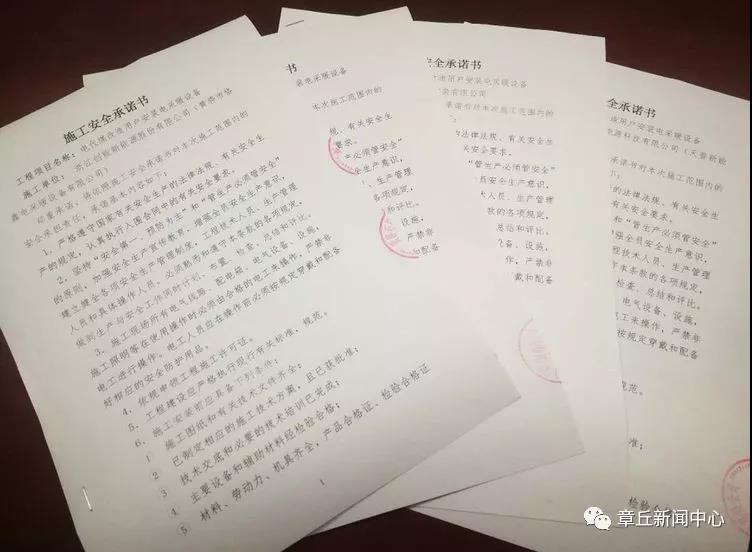 施工安全承诺书
工程项目名称：电代煤改造用户安装电采暖设备
施工单位：浙江创能新能源股份有限公司（黄骅市格
鑫电采暖设备有限公司）
郑重承诺，将依照施工安全承诺书对本次施工范围内的
安全承担责任，承诺基本内容如下：
1、严格遵守国家有关安全生产的法律法规、有关安全生
产的规定，认真执行入围合同中的有关安全要求。
2、坚持“安全第一、预防为主”和“管生产必须管安全”
的原则，加强安全生产宣传教育，增强全员安全生产意识，
建立健全各项安全生产管理制度，工程技术人员、生产管理
人员和具体操作人员，必须熟悉和遵守本条款的各项规定，
做到生产与安全工作同时计划、布置、检查、总结和评比。
3、施工现场所有电气线路、配电箱、电气设备、设施，
施工照明等在使用操作时必须由合格的电工来操作，严禁非
电工进行操作。电工人员应在操作前必须按规定穿戴和配备
好相应的安全防护用品。
4、依规申领工程施工许可证。
5、工程建设应严格执行现行有关标准、规范。
6、施工安装前应具备下列条件：
① 施工图纸和有关技术文件齐全；
② 已制定相应的施工技术方案，且已获批准；
③ 技术交底和必要的技术培训已完成；
④ 主要设备和辅助材料经检验合格；
⑤ 材料、劳动力、机具齐全，产品合格证、检验合格证
1
书
装电采暖设备
本次施工范围内的
规、有关安全生
要求。
产必须管安全”
安全生产意识，
、生产管理
各项规定，
和评比。
设施，
严禁非
和配备
安全承诺书
造用户安装电采暖设备
有限公司）
承诺书对本次施工范围内的
法律法规、有关安全生
关安全要求。
“管生产必须管安全”
员安全生产意识，
术人员、生产管理
款的各项规定，
总结和评比。
设备、设施，
作，严禁非
戴和配备
全承诺书
造用户安装电采暖设备
能源科技有限公司（天普新能
诺书对本次施工范围内的
的法律法规、有关安全生
有关安全要求。
和“管生产必须管安全”
增强全员安全生产意识，
程技术人员、生产管理
守本条款的各项规定，
检查、总结和评比。
电气设备、设施，
电工来操作，严禁非
按规定穿戴和配备
规范。
准；
检验合
章丘新闻中心